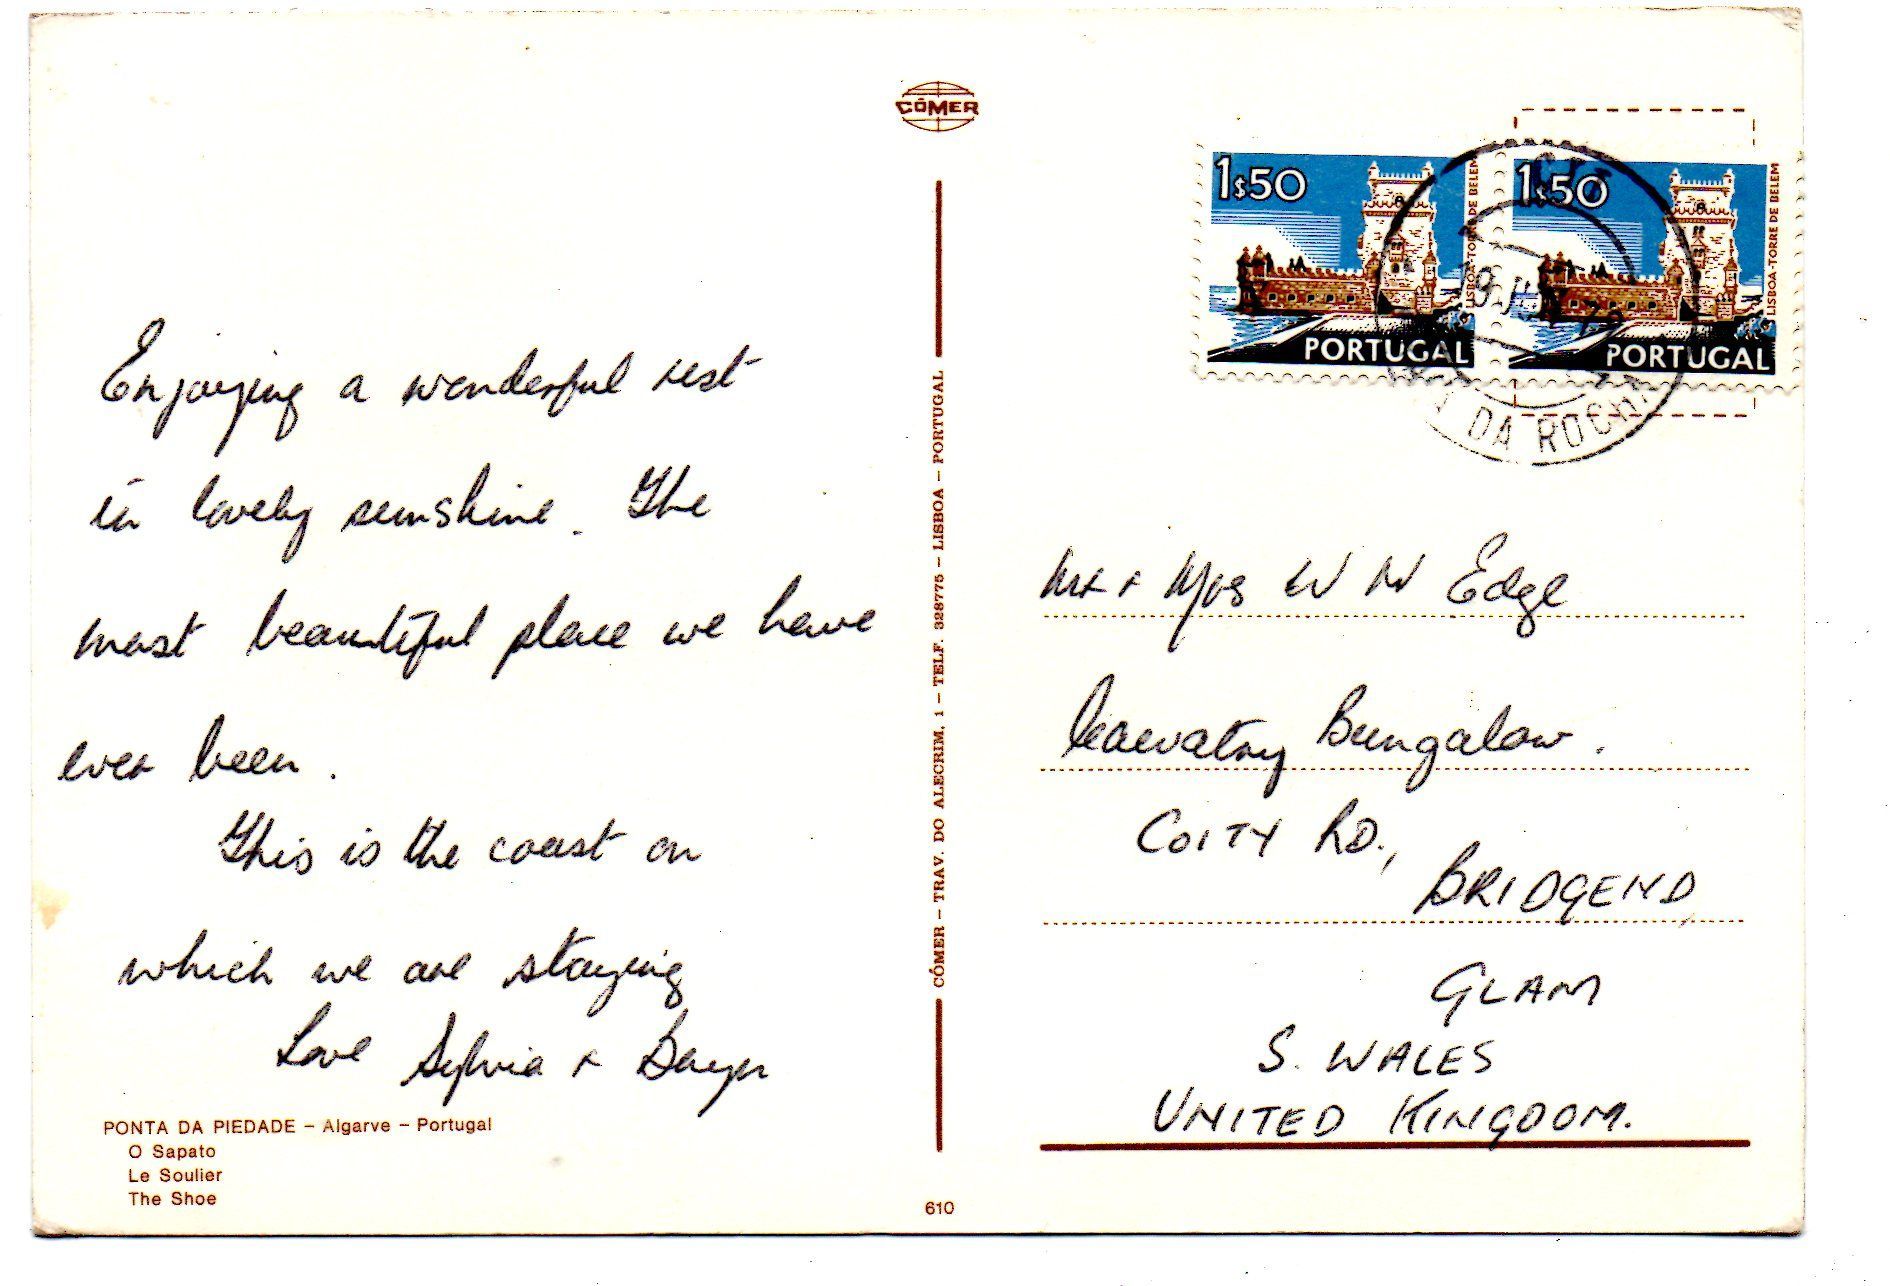 Enjoying a wonderful rest
in lovely sunshine. The
most beautiful place we have
ever been.
This is the coast on
which we are staying
Love Sylvia +
PONTA DA PIEDADE – Algarve – Portugal
O Sapato
Le Soulier
The Shoe
CÓMER
CÓMER – TRAV. DO ALECRIM, 1 – TELF. 328775 – LISBOA – PORTUGAL
610
1$50
LISBOA-TORRE DE BELEM
PORTUGAL
1$50
LISBOA-TORRE DE BELEM
PORTUGAL
DA ROCHA
Mr + Mrs W N Edge
Bungalow.
COITY RD.,
BRIDGEND,
GLAM
S. WALES
UNITED KINGDOM.